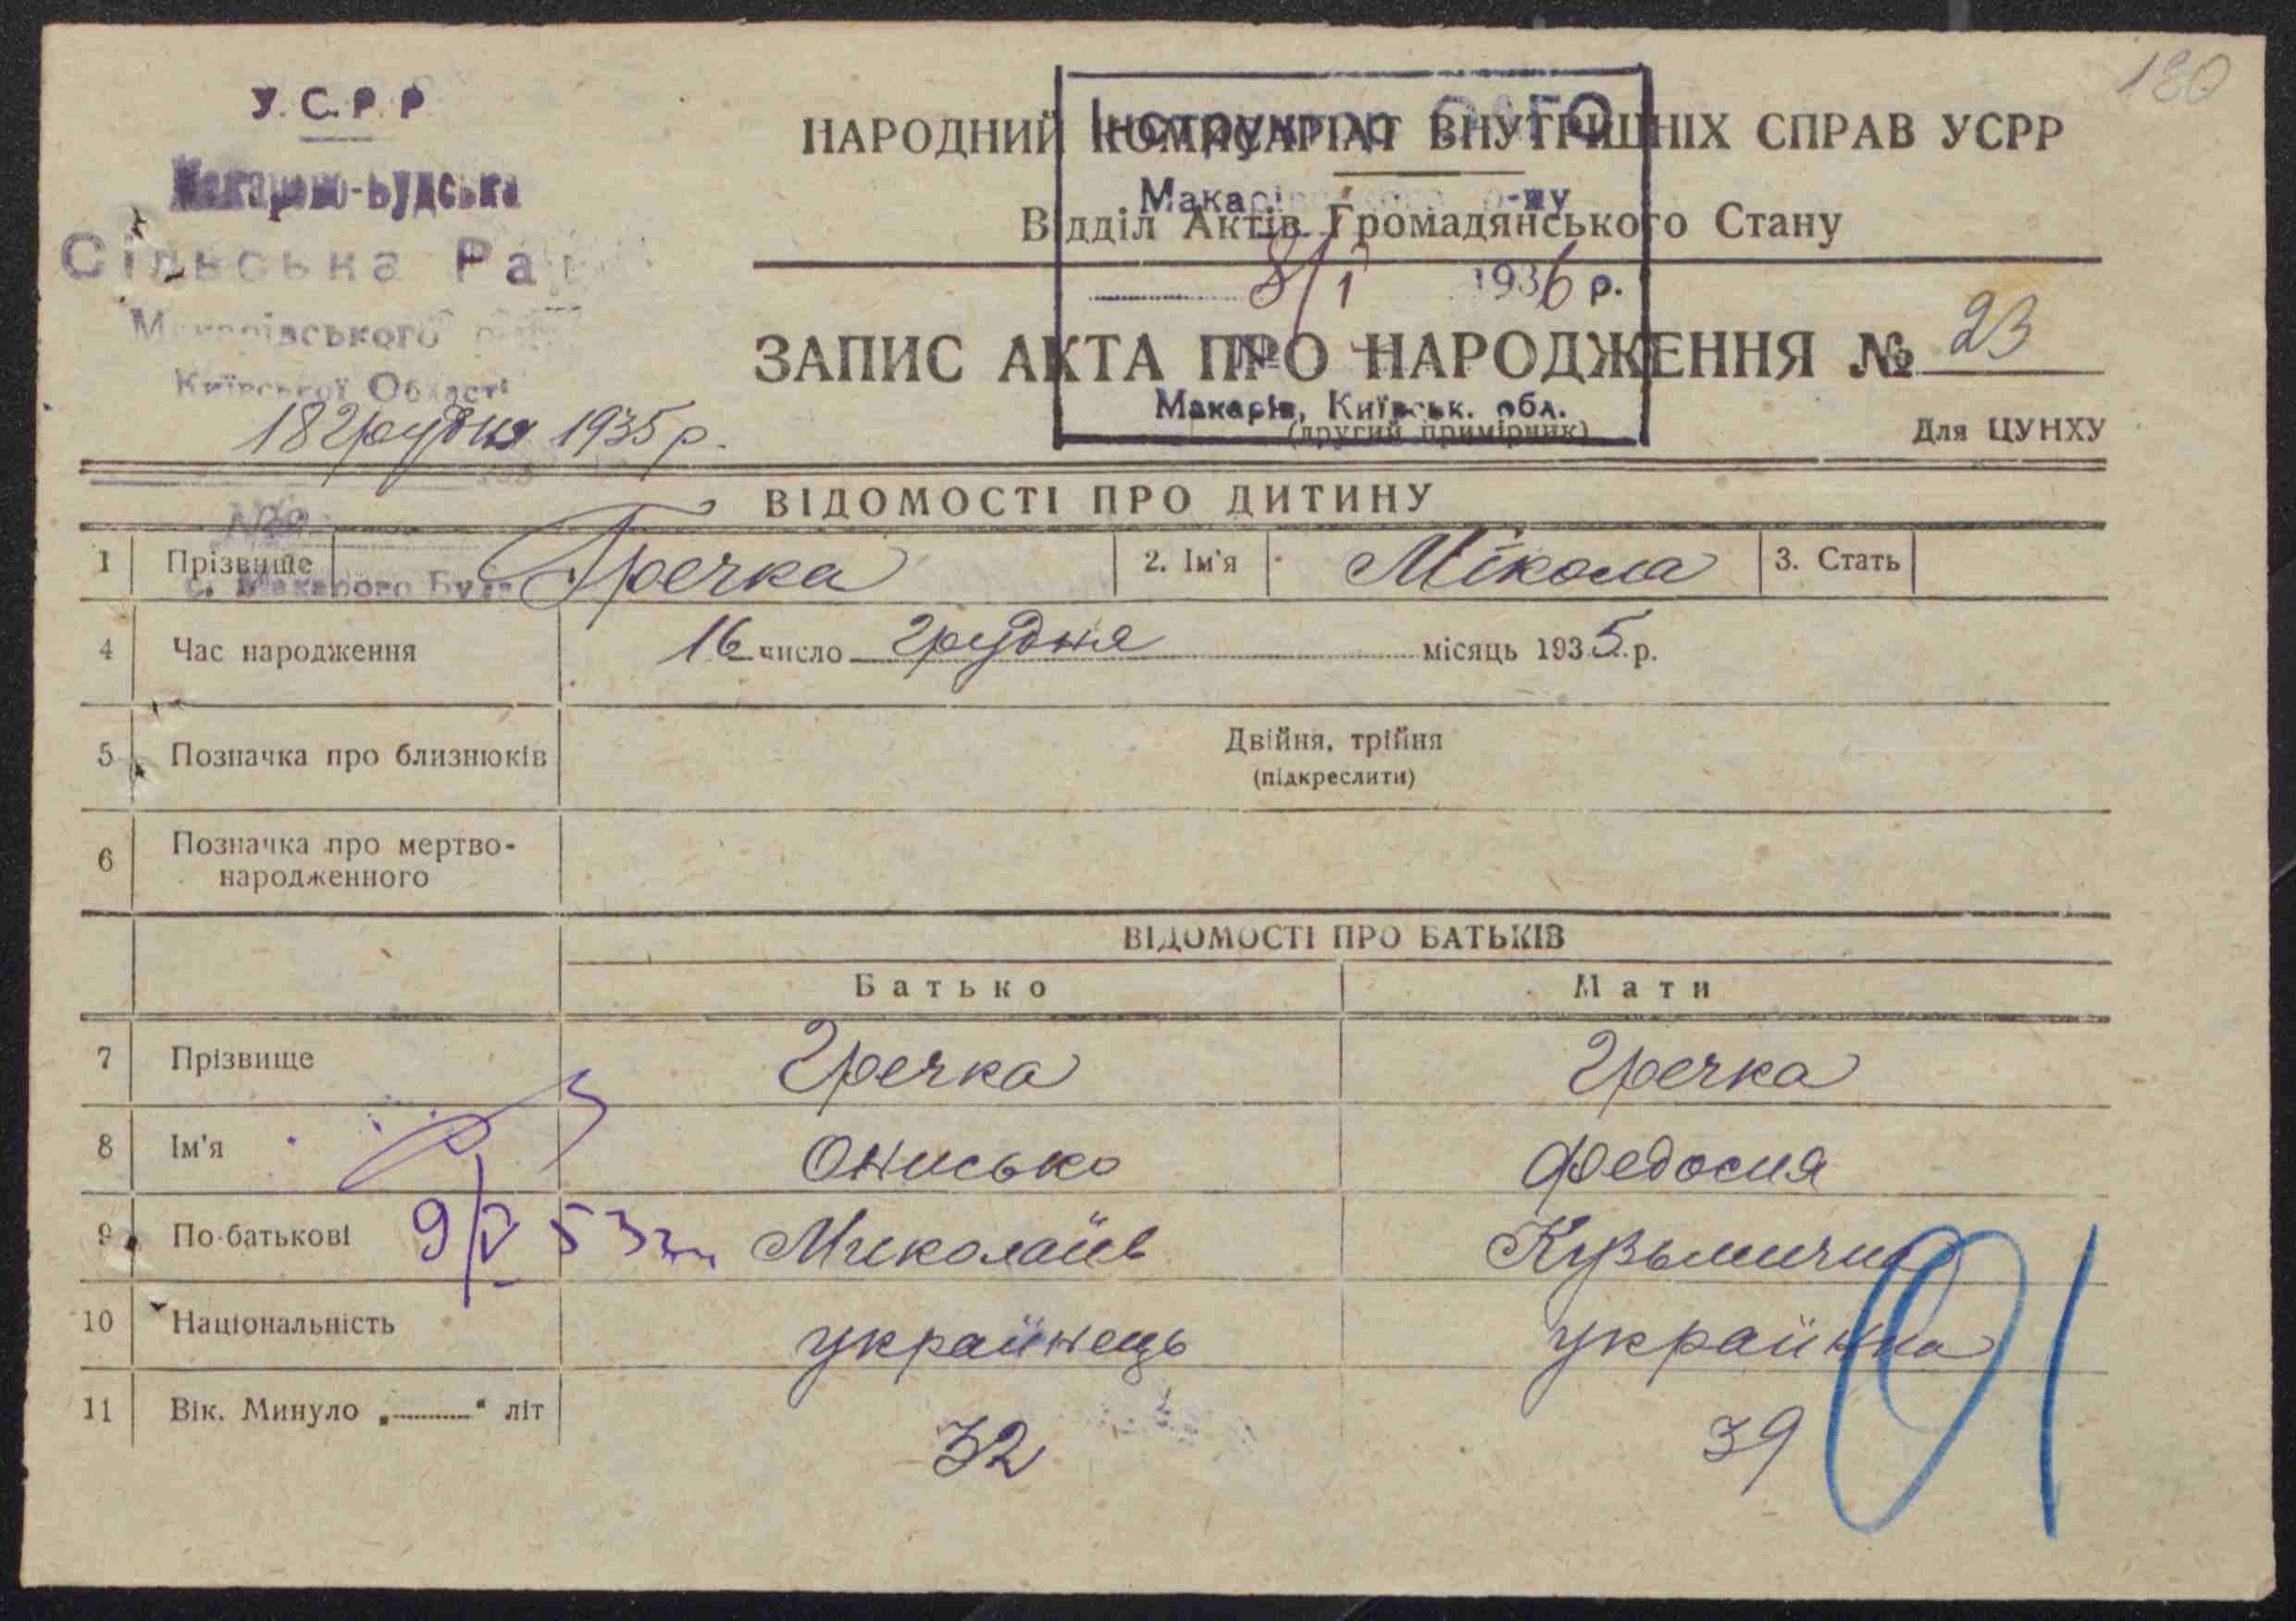 130
У.С.Р.Р
Макарово-Будська
Сільська Ра
Макарівського
Київської Області
18 грудня 1935 р.
с. Макарово Буда
НАРОДНИЙ КОМІСАРІАТ ВНУТРІШНІХ СПРАВ УСРР
Відділ Актів Громадянського Стану
Інструктор
Макарівського р-ну
8/I 1936 р.
№
Макарів, Київськ. обл.
ЗАПИС АКТА ПРО НАРОДЖЕННЯ № 23
(другий примірник)
Для ЦУНХУ
ВІДОМОСТІ ПРО ДИТИНУ
1 Прізвище Гречка 2. Ім'я Мікола 3. Стать
4 Час народження 16 число грудня місяць 1935 р.
5 Позначка про близнюків Двійня, трійня
(підкреслити)
6 Позначка про мертво-
народженного
ВІДОМОСТІ ПРО БАТЬКІВ
Батько Мати
7 Прізвище Гречка Гречка
8 Ім'я Онисько Федосия
9 По-батькові Миколаїв Кузьмична
9/V 53
10 Національність українець українка
11 Вік. Минуло „ “ літ 32 39
01